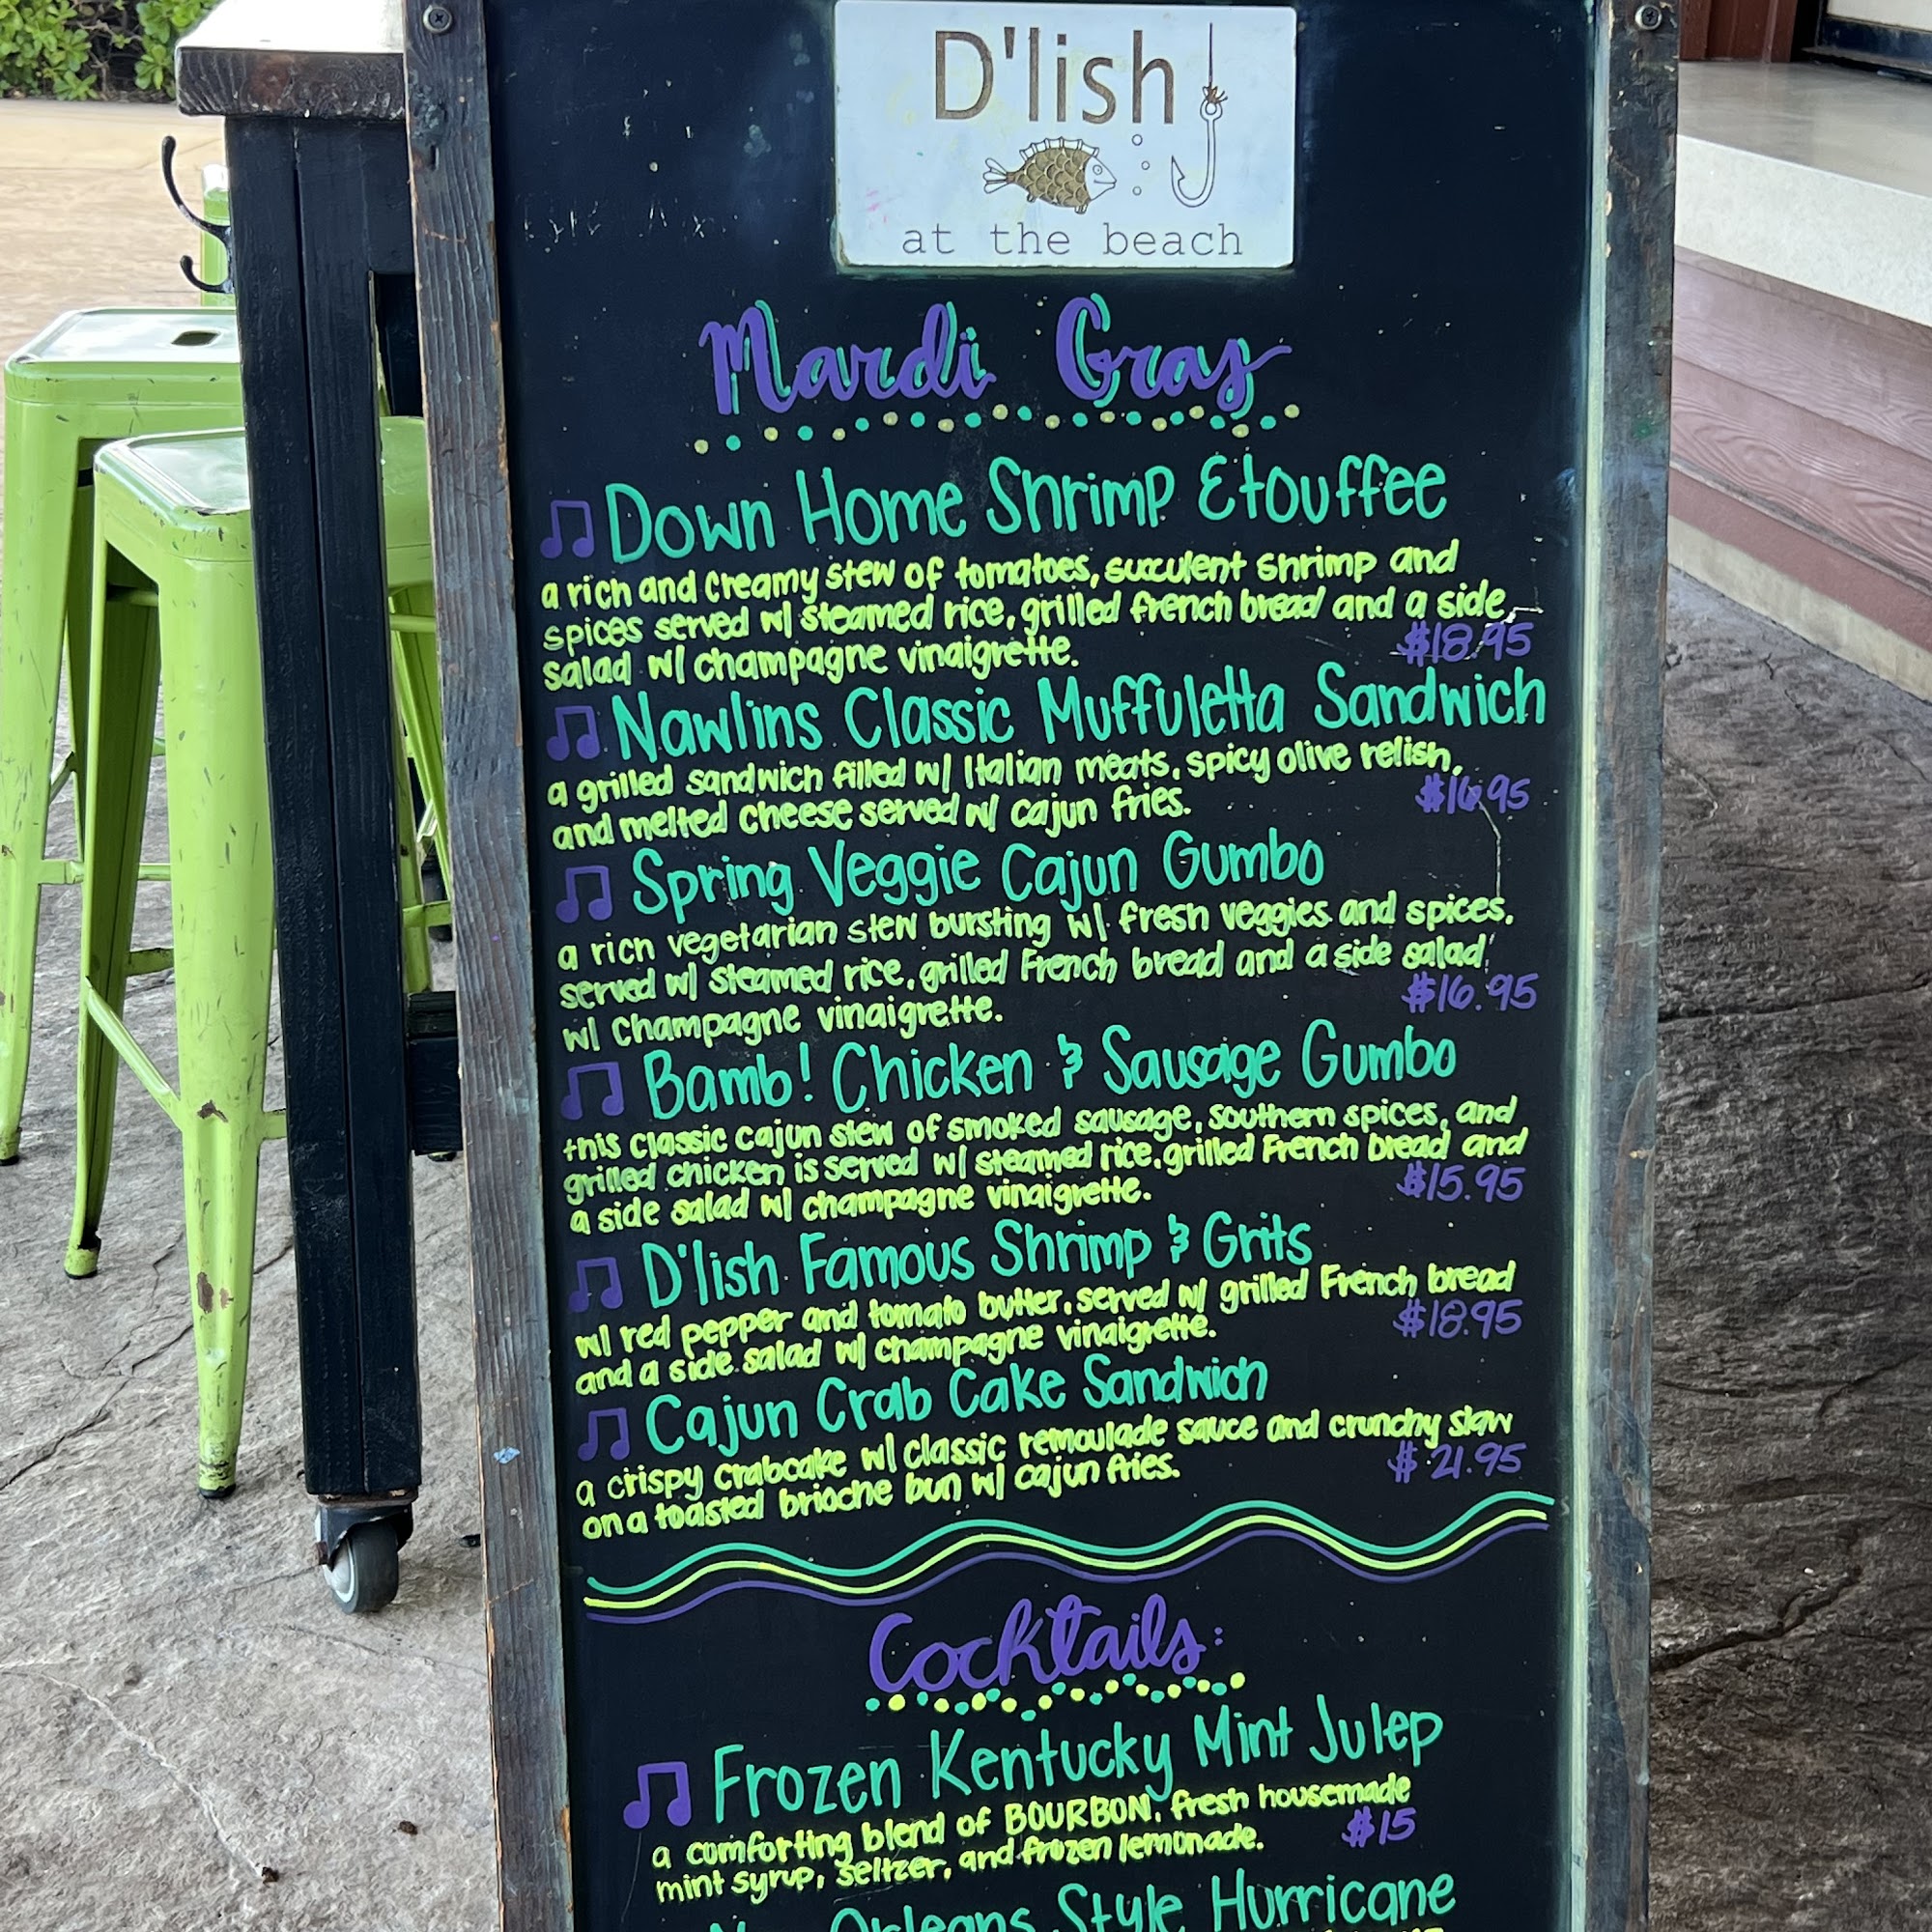 D'lish
at the beach
Mardi Gras
Down Home Shrimp Etouffee
a rich and creamy stew of tomatoes, succulent shrimp and
spices served w/ steamed rice, grilled french bread and a side
salad w/ champagne vinaigrette. $18.95
Nawlins Classic Muffuletta Sandwich
a grilled sandwich filled w/ Italian meats, spicy olive relish,
and melted cheese served w/ cajun fries. $16.95
Spring Veggie Cajun Gumbo
a rich vegetarian stew bursting w/ fresh veggies and spices,
served w/ steamed rice, grilled French bread and a side salad
w/ champagne vinaigrette. $16.95
Bamb! Chicken & Sausage Gumbo
this classic cajun stew of smoked sausage, southern spices, and
grilled chicken is served w/ steamed rice, grilled French bread and
a side salad w/ champagne vinaigrette. $15.95
D'lish Famous Shrimp & Grits
w/ red pepper and tomato butter, served w/ grilled French bread
and a side salad w/ champagne vinaigrette. $18.95
Cajun Crab Cake Sandwich
a crispy crabcake w/ classic remoulade sauce and crunchy slaw
on a toasted brioche bun w/ cajun fries. $21.95
Cocktails:
Frozen Kentucky Mint Julep
a comforting blend of BOURBON, fresh housemade
mint syrup, seltzer, and frozen lemonade. $15
New Orleans Style Hurricane